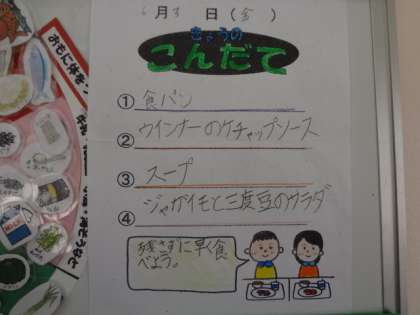 月 日(金)
きょうの
こんだて
① 食パン
② ウインナーのケチャップソース
③ スープ
④ ジャガイモと三度豆のサラダ
残さずに早く食
べよう。
おもに体を